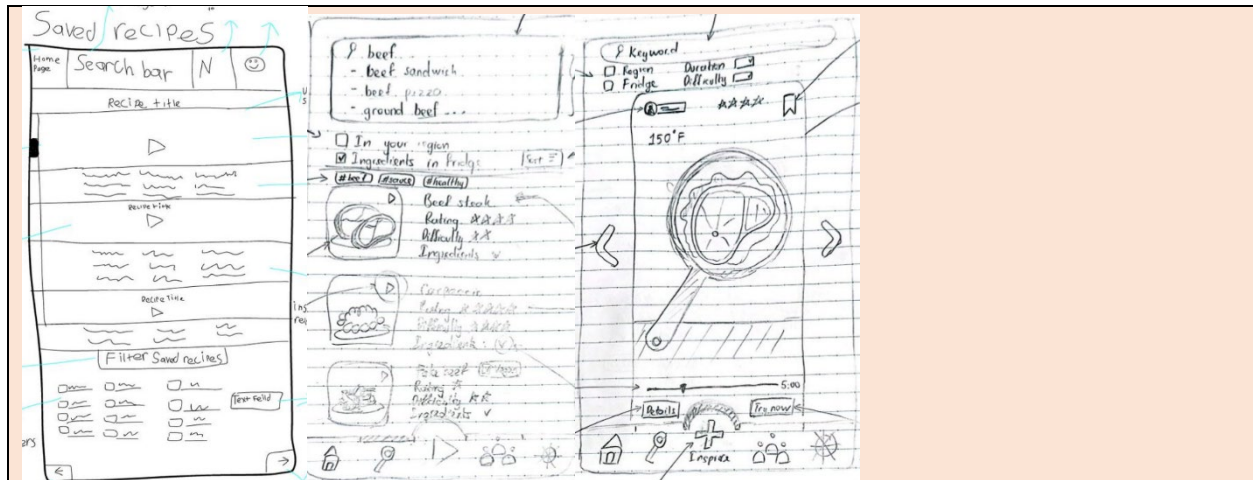 Saved recipes
Home Page
Search bar
N
Recipe title
Recipe title
Recipe title
Filter Saved recipes
Text field
beef
- beef sandwich
- beef pizza
- ground beef ...
In your region
Ingredients in fridge
Sort
#beef #sauce #healthy
Beef steak
Rating
Difficulty
Ingredients
Rating
Difficulty
Ingredients :
Rating
Difficulty
Ingredients
Keyword
Region
Duration
Fridge
Difficulty
150°F
5:00
Details
Try now
Inspire